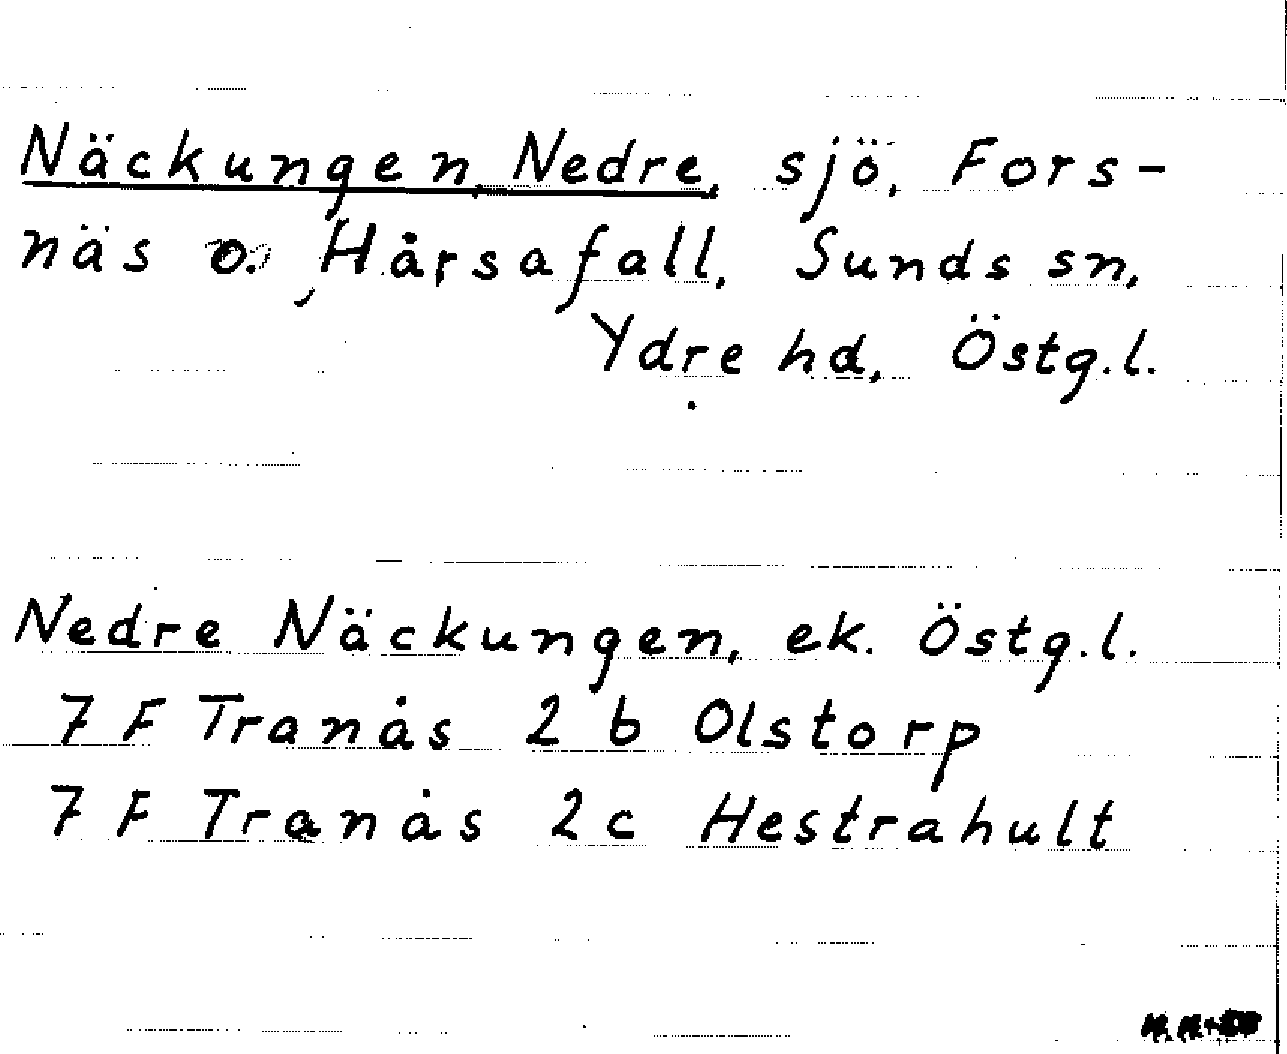 Näckungen, Nedre, sjö, Fors-
näs o. Hårsafall, Sunds sn,
Ydre hd, Östg.l.
Nedre Näckungen, ek. Östg.l.
7 F Tranås 2 b Olstorp
7 F Tranås 2c Hestrahult